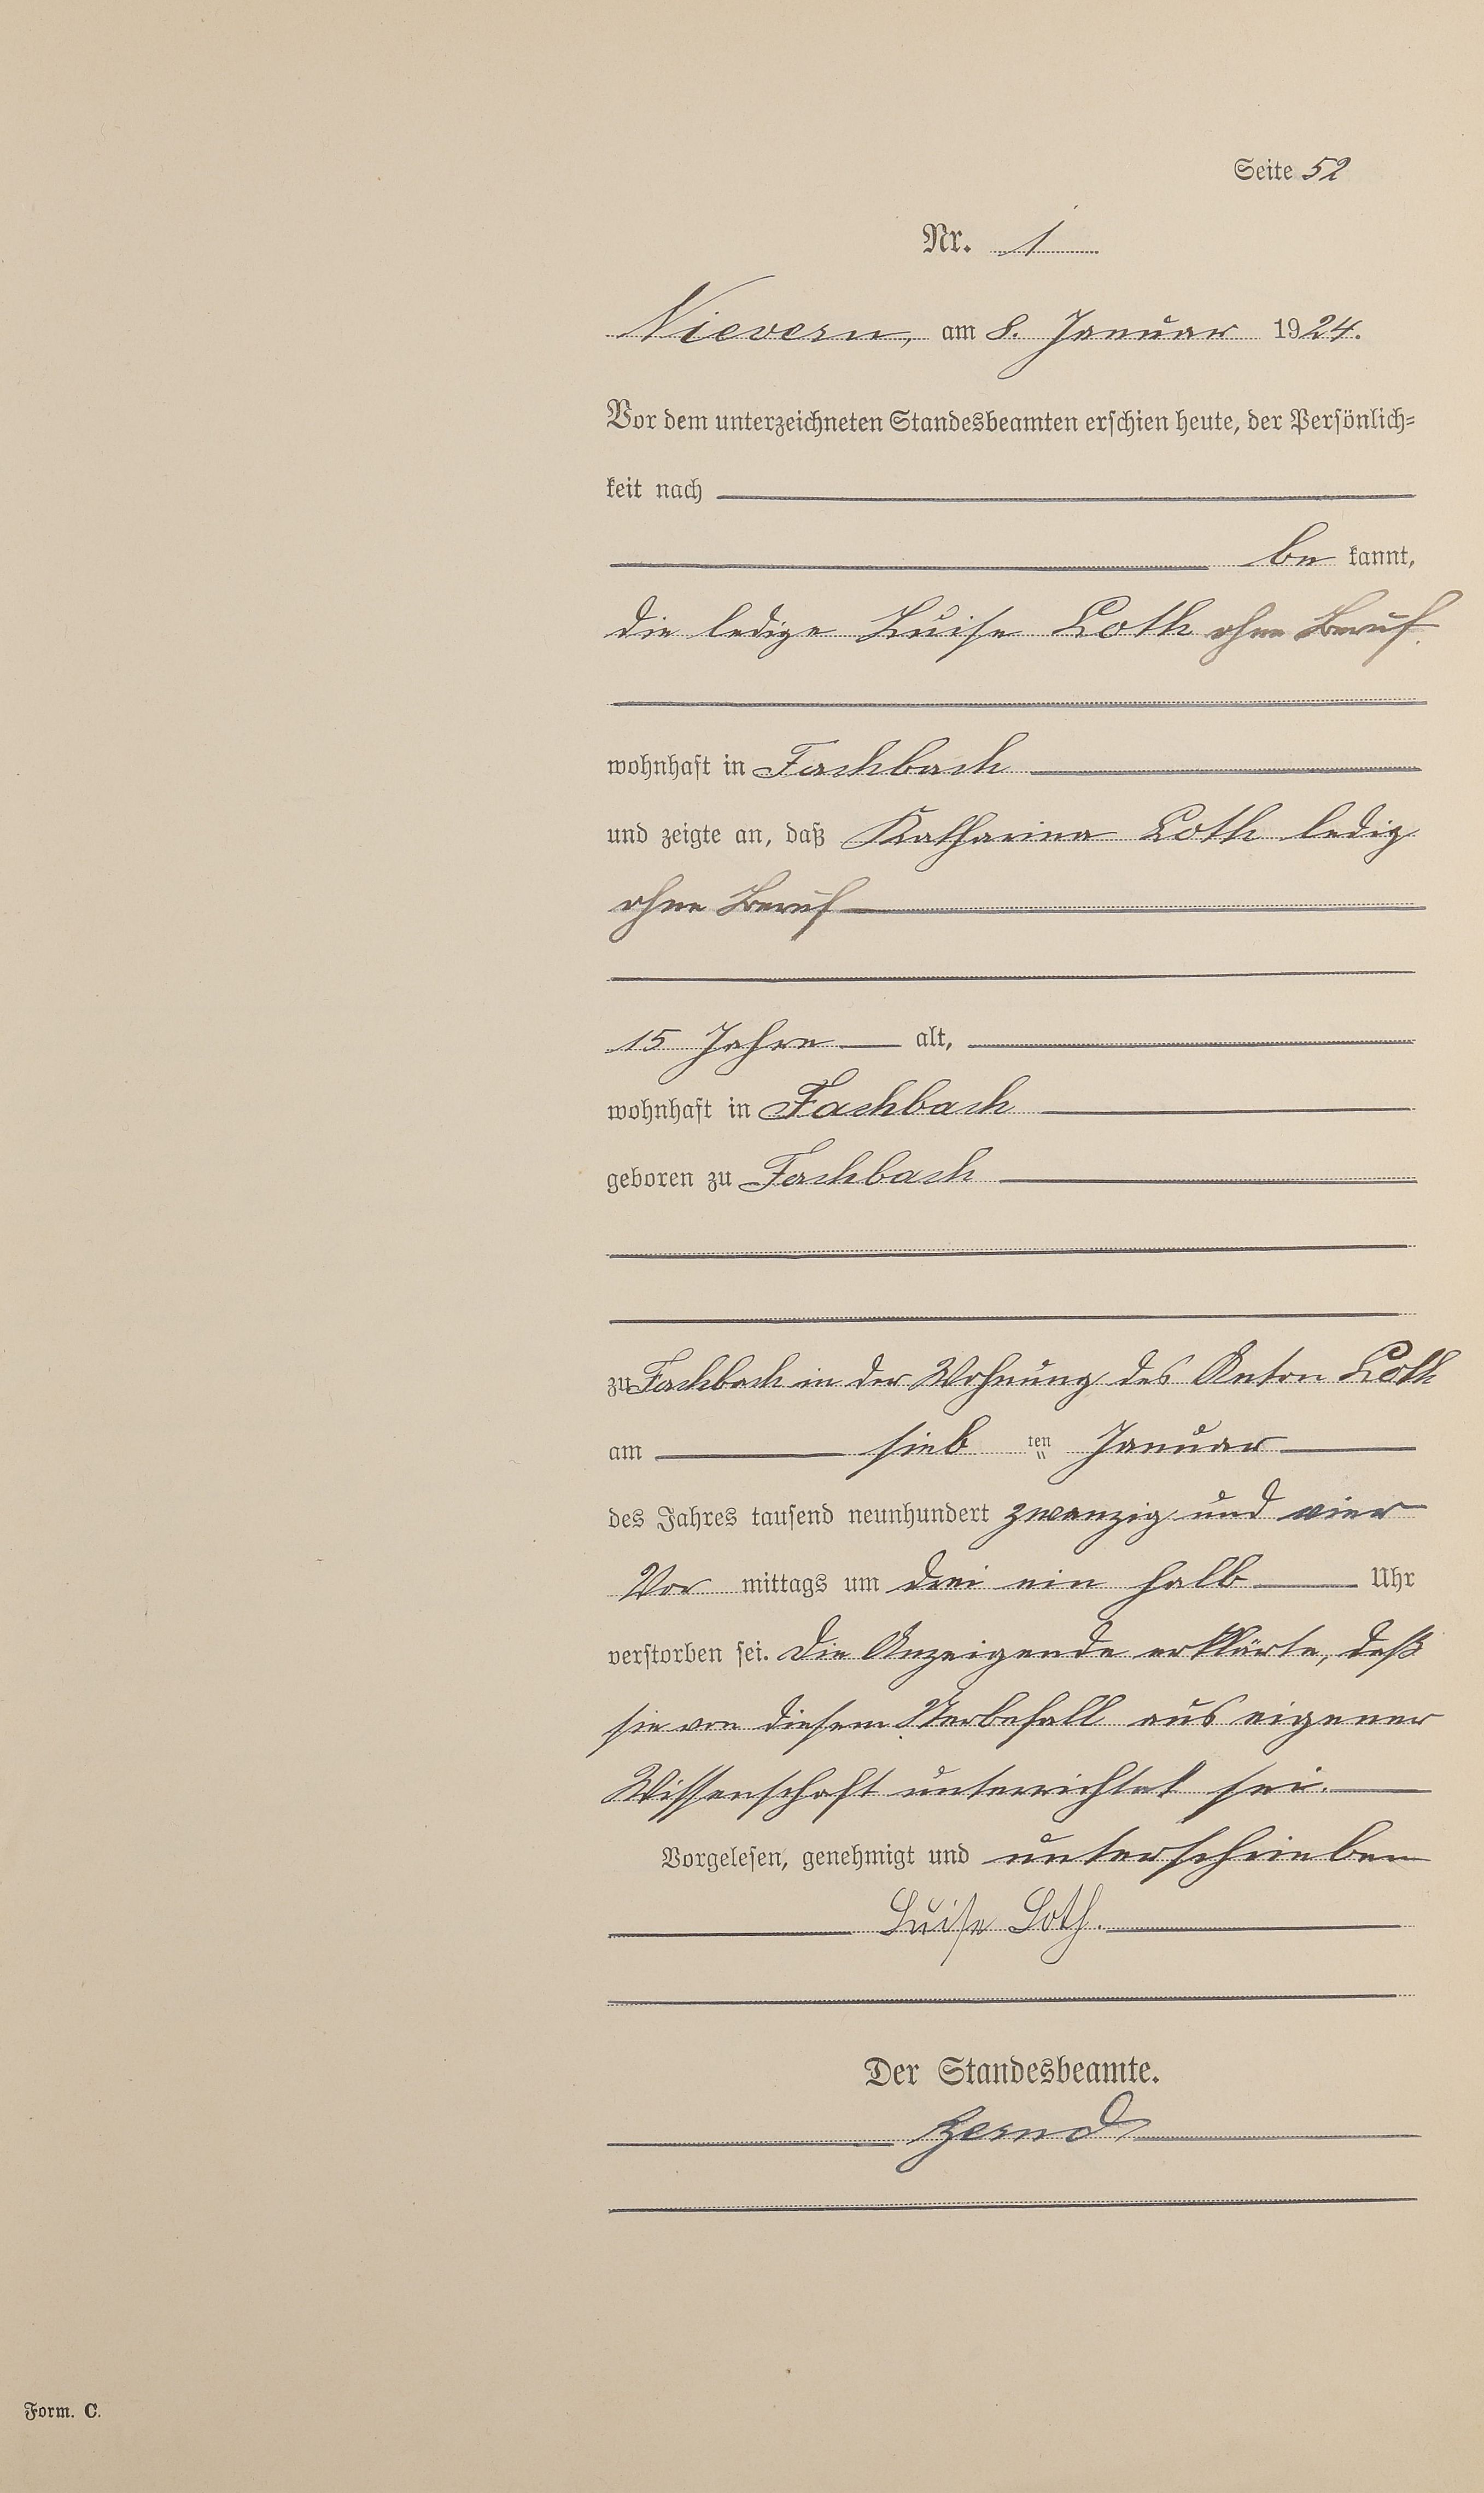 Seite 52
Nr. 1
Nievern, am 8. Januar 1924.
Vor dem unterzeichneten Standesbeamten erschien heute, der Persönlich-
keit nach
be kannt,
die ledige Luise Loth ohne Beruf.
wohnhaft in Fachbach
und zeigte an, daß Katharina Loth ledig
ohne Beruf
15 Jahre alt,
wohnhaft in Fachbach
geboren zu Fachbach
zu Fachbach in der Wohnung des Anton Loth
am sieb ten Januar
des Jahres tausend neunhundert zwanzig und vier
Vor mittags um drei ein halb Uhr
verstorben sei. Die Anzeigende erklärte, daß
sie von diesem Sterbefall aus eigener
Wissenschaft unterrichtet sei.
Vorgelesen, genehmigt und unterschrieben
Luise Loth.
Der Standesbeamte.
Form. C.